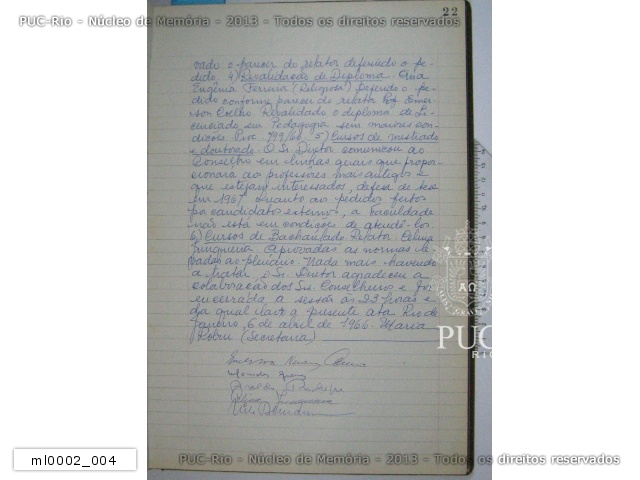 PUC-Rio - Núcleo de Memória - 2013 - Todos os direitos reservados
22
vado o parecer do relator deferindo o pe-
dido. 4) Revalidação de Diploma. Ana
Eugênia Ferreira (Religiosa) Deferido o pe-
dido conforme parecer do relator Prof. Emer-
son Coelho. Revalidado o diploma de Li-
cenciado em Pedagogia sem maiores con-
dições Proc. 799/66. 5) Cursos de mestrado
e doutorado. O Sr. Diretor comunicou ao
Conselho em linhas gerais que propor-
cionara aos professores mais antigos e
que estejam interessados, defesa de tese
em 1967. Quanto aos pedidos feitos
por candidatos externos, a Faculdade
não está em condições de atendê-los.
6) Cursos de Bacharelado Relator: Celina
Junqueira. Aprovadas as normas le-
vadas ao plenário. Nada mais havendo
a tratar o Sr. Diretor agradeceu a
colaboração dos Srs. Conselheiros e foi
encerrada a sessão às 23 horas e
da qual lavro a presente ata. Rio de
Janeiro, 6 de abril de 1966. Maria
(Secretária)
PUC
RIO
ml0002_004
PUC-Rio - Núcleo de Memória - 2013 - Todos os direitos reservados